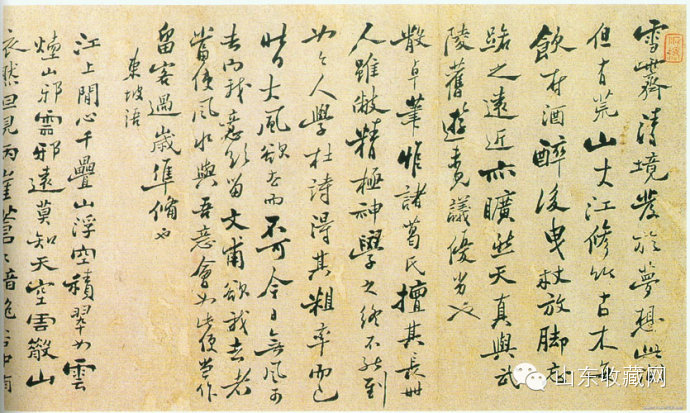 雪齋清境發於夢想此間
但有荒山大江修竹古木每
飲村酒醉後曳杖放脚忘
路之遠近亦曠然天真與武
陵舊遊未議優劣也
散卓筆惟諸葛氏擅其長世
人雖敝精極神學之終不能到
如人學杜詩得其粗率而已
昨日大風欲去而不可今日無風可
去而我意欲留文甫欲我去者
當使風水與吾意會如此便當作
留客過歲準備也
東坡語
江上閒心千疊山浮空積翠如雲
煙山邪雲邪遠莫知天空雲散山
依然但見兩崖蒼蒼暗絕谷中有
山东收藏网